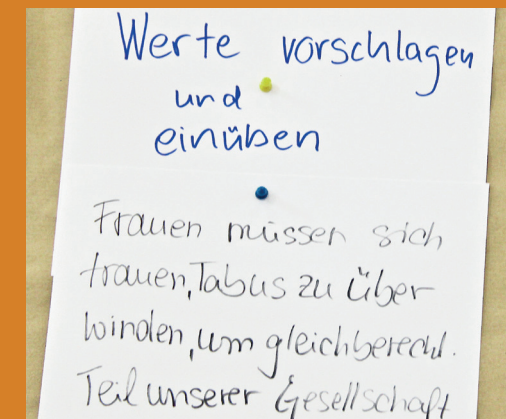 Werte vorschlagen
und
einüben
Frauen müssen sich
trauen, Tabus zu über
winden, um gleichberecht.
Teil unserer Gesellschaft